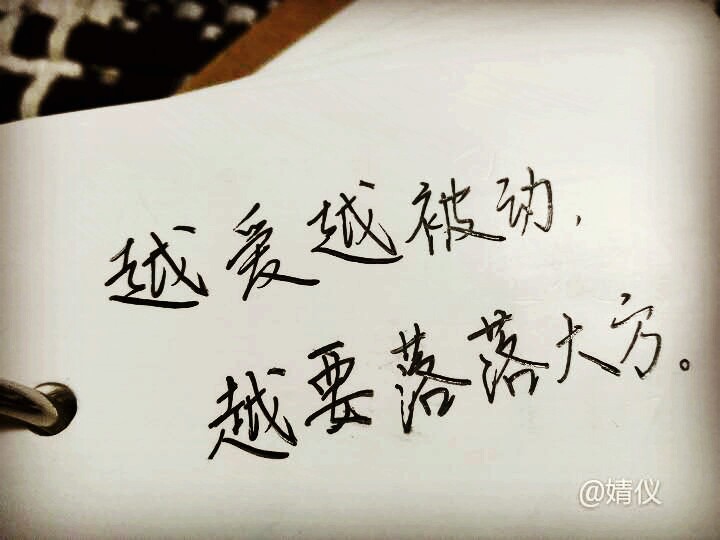 越爱越被动，
越要落落大方。
@婧仪